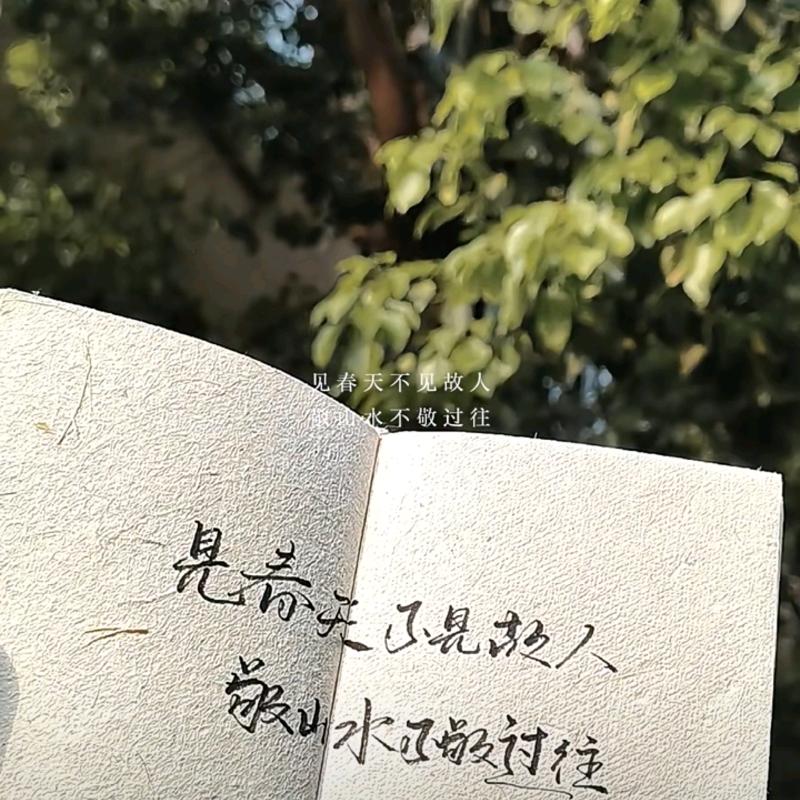 见春天不见故人
敬山水不敬过往
见春天不见故人
敬山水不敬过往